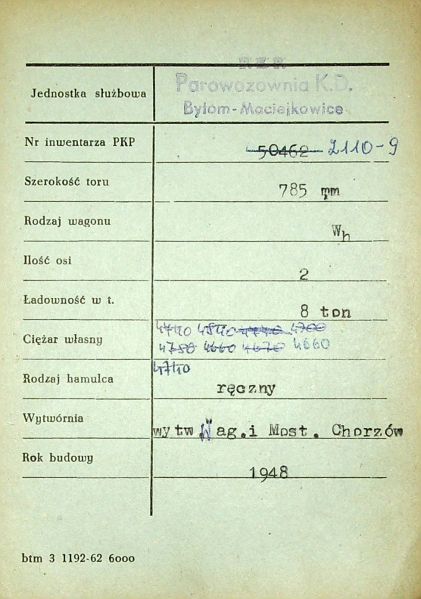 R Z K
Jednostka służbowa Parowozownia K.D.
Bytom-Maciejkowice
Nr inwentarza PKP 50462 2110-9
Szerokość toru 785 mm
Rodzaj wagonu Wh
Ilość osi 2
Ładowność w t. 8 ton
Ciężar własny 4740 4840 4700
4780 4660 4670 4660
4740
Rodzaj hamulca ręczny
Wytwórnia wytw.Wag.i Most. Chorzów
Rok budowy 1948
btm 3 1192-62 6000